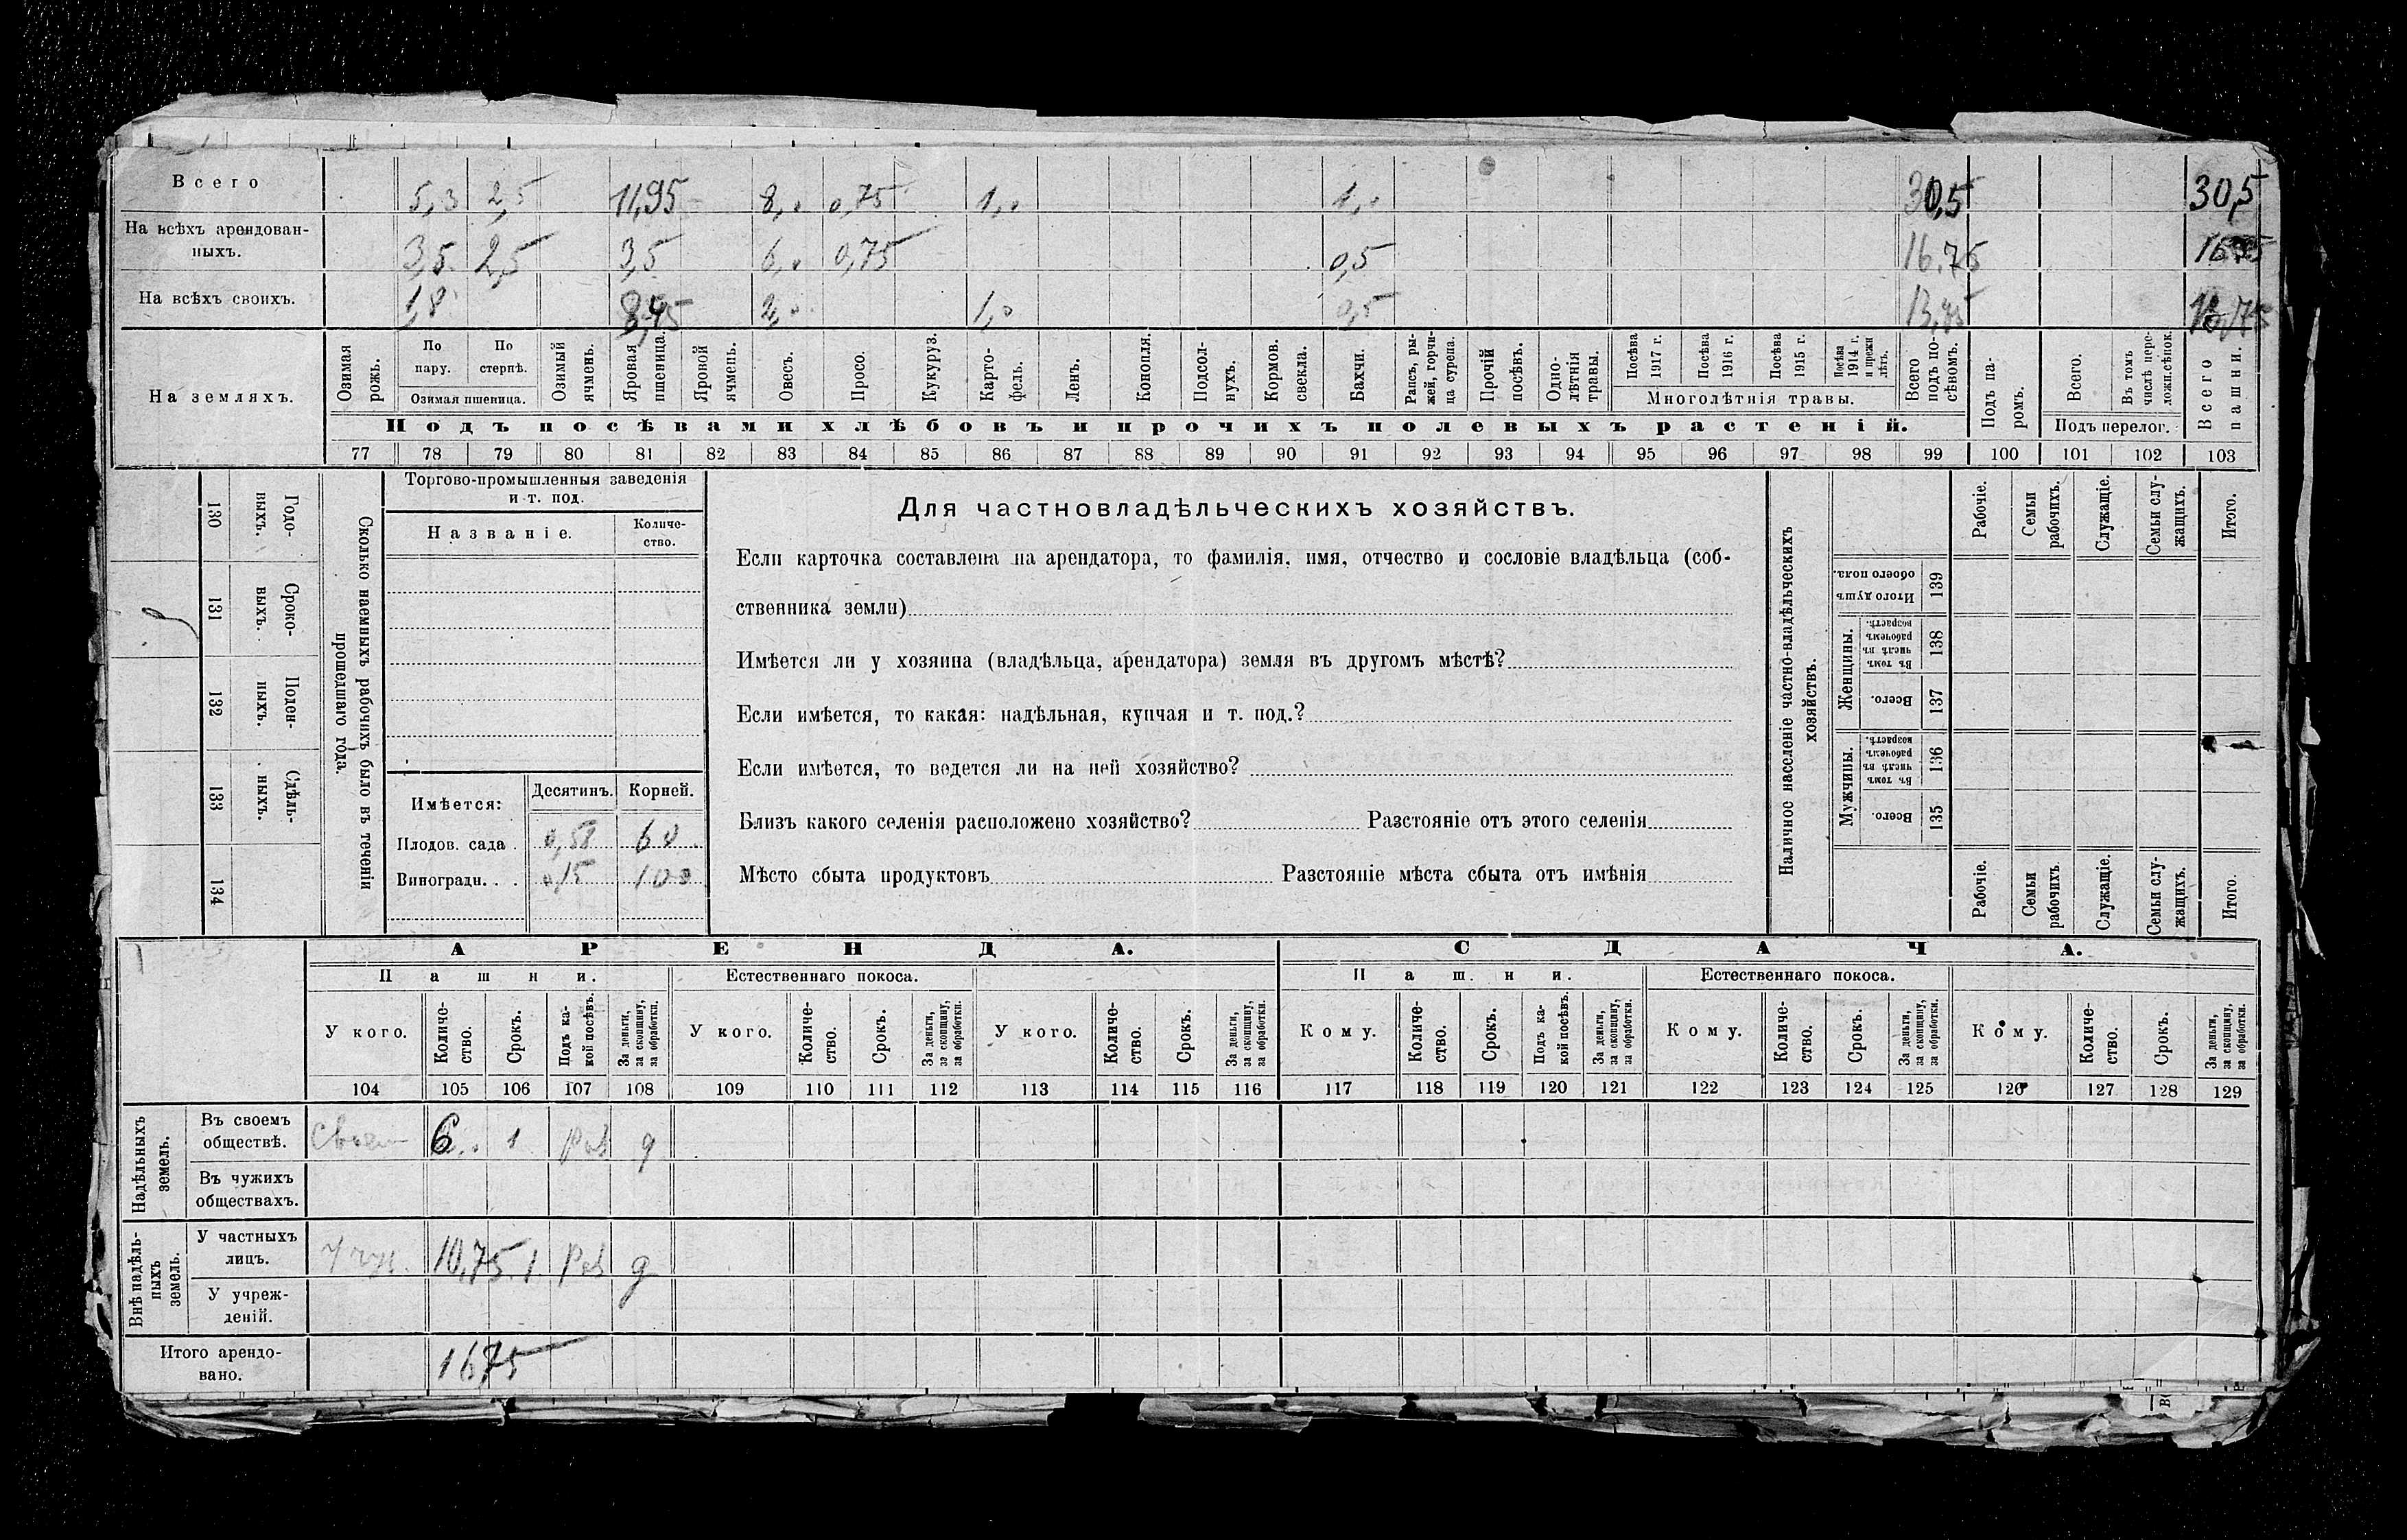 Всего 5,3 2,5 11,95 8,0 0,75 1,0 1,0 30,5 30,5
На всѣхъ арендован-
ныхъ. 3,5 2,5 3,5 6,0 0,75 0,5 16.75 16,75
На всѣхъ своихъ. 1,8 8,45 2,0 1,0 0,5 13,75 13,75
На земляхъ.
Озимая рожь.
По пару.
По стернѣ.
Озимая пшеница.
Озимый ячмень.
Яровая пшеница.
Яровой ячмень.
Овесъ.
Просо.
Кукуруз.
Карто-
фель.
Ленъ.
Конопля.
Подсол-
нухъ.
Кормов.
свекла.
Бахчи.
Рапсъ, ры-
жей, горчи-
ца сурепа.
Прочій
посѣвъ.
Одно-
лѣтнія
травы.
Посѣва
1917 г.
Посѣва
1916 г.
Посѣва
1915 г.
Посѣва
1914 г.
и прежн
лѣтъ.
Многолѣтнія травы.
Всего
подъ по-
сѣвомъ.
Подъ па-
ромъ.
Всего.
Въ томъ
числѣ пере-
ложн.сѣнок.
Подъ перелог.
Всего
пашни.
Подъ посѣвами хлѣбовъ и прочихъ полевыхъ растеній.
77 78 79 80 81 82 83 84 85 86 87 88 89 90 91 92 93 94 95 96 97 98 99 100 101 102 103
130 Годо-
выхъ.
131 Сроко-
выхъ.
132 Поден-
ныхъ.
133 Сдѣль-
ныхъ.
134
Сколько наемныхъ рабочихъ было въ теченіи
прошедшаго года.
Торгово-промышленныя заведенія
и т. под.
Названіе.
Количе-
ство.
Имѣется: Десятинъ. Корней.
Плодов. сада . 0,58 60
Виноградн. . . 0,15 100
Для частновладѣльческихъ хозяйствъ.
Если карточка составлена на арендатора, то фамилія, имя, отчество и сословіе владѣльца (соб-
ственника земли)
Имѣется ли у хозяина (владѣльца, арендатора) земля въ другомъ мѣстѣ?
Если имѣется, то какая: надѣльная, купчая и т. под.?
Если имѣется, то ведется ли на ней хозяйство?
Близъ какого селенія расположено хозяйство? Разстояніе отъ этого селенія
Мѣсто сбыта продуктовъ Разстояніе мѣста сбыта отъ имѣнія
Наличное населеніе частно-владѣльческихъ
хозяйствъ.
Рабочіе.
Семьи
рабочихъ.
Служащіе.
Семьи слу-
жащихъ.
Итого.
Итого душъ
обоего пола.
139
Женщины.
Въ томъ
числѣ въ
рабочемъ
возрастѣ.
138
Всего.
137
Мужчины.
Въ томъ
числѣ въ
рабочемъ
возрастѣ.
136
Всего.
135
Рабочіе.
Семьи
рабочихъ.
Служащіе.
Семьи слу-
жащихъ.
Итого.
АРЕНДА. СДАЧА.
Пашни. Естественнаго покоса. Пашни. Естественнаго покоса.
У кого.
Количе-
ство.
Срокъ.
Подъ ка-
кой посѣвъ.
За деньги,
за скопщину,
за обработки.
У кого.
Количе-
ство.
Срокъ.
За деньги,
за скопщину,
за обработки.
У кого.
Количе-
ство.
Срокъ.
За деньги,
за скопщину,
за обработки.
Кому.
Количе-
ство.
Срокъ.
Подъ ка-
кой посѣвъ.
За деньги,
за скопщину,
за обработки.
Кому.
Количе-
ство.
Срокъ.
За деньги,
за скопщину,
за обработки.
Кому.
Количе-
ство.
Срокъ.
За деньги,
за скопщину,
за обработки.
104 105 106 107 108 109 110 111 112 113 114 115 116 117 118 119 120 121 122 123 124 125 126 127 128 129
Надѣльныхъ
земель.
Въ своемъ
обществѣ. 6 1 д
Въ чужихъ
обществахъ.
Внѣ надѣль-
ныхъ
земель.
У частныхъ
лицъ. 10,75 1 д
У учреж-
деній.
Итого арендо-
вано. 16,75